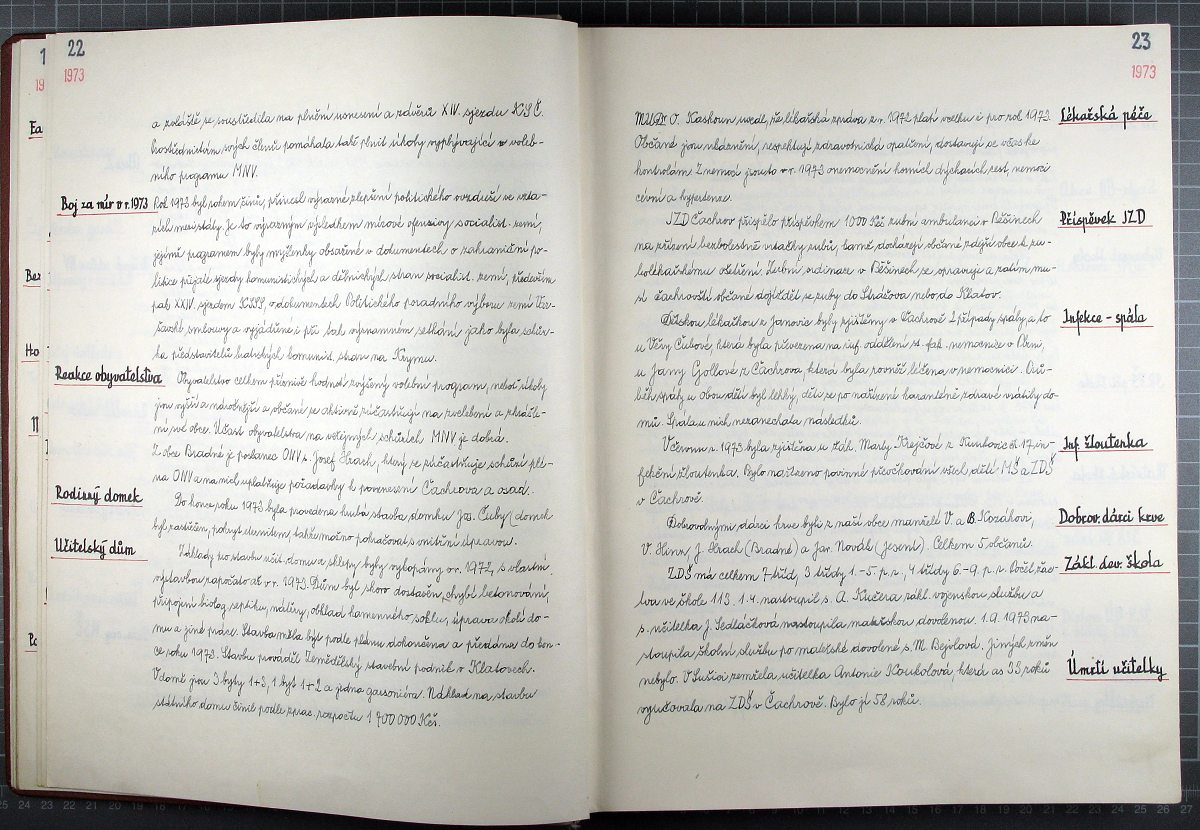 22
1973
a zvláště se soustředila na plnění usnesení a závěrů XIV. sjezdu KSČ.
Prostřednictvím svých členů pomáhala také plnit úkoly vyplývající z voleb-
ního programu MNV.
Boj za mír v r. 1973
Rok 1973 byl rokem činů, přinesl výrazné zlepšení politického ovzduší ve vzta-
zích mezi státy. Je to výrazným výsledkem mírové ofenzivy socialist. zemí,
jejímž programem byly myšlenky obsažené v dokumentech o zahraniční po-
litice přijaté sjezdy komunistických a dělnických stran socialist. zemí, především
pak XXIV. sjezdem KSSS, v dokumentech Politického poradního výboru zemí Var-
šavské smlouvy a vyjádřené i při tak významném setkání jako byla schůz-
ka představitelů bratrských komunist. stran na Krymu.
Reakce obyvatelstva
Obyvatelstvo celkem příznivě hodnotí zvýšený volební program, neboť úkoly
jsou vyšší a náročnější a občané se aktivně zúčastňují na zvelebení a zkrášle-
ní své obce. Účast obyvatelstva na veřejných schůzích MNV je dobrá.
Z obce Bradné je poslanec ONV s. Josef Hrach, který se zúčastňuje schůzí plé-
na ONV a na nich uplatňuje požadavky k povznesení Čachrova a osad.
Rodinný domek
Do konce roku 1973 byla provedena hrubá stavba domku Jos. Čuby (domek
byl zastřešen, pokryt eternitem, takže možno pokračovat s vnitřní úpravou.
Učitelský dům
Základy pro stavbu učit. domu a sklepy byly vykopány v r. 1972, s vlastní
výstavbou započato až v r. 1973. Dům byl skoro dostavěn, chybí betonování,
připojení biolog. septiku, nátěry, obklad kamenného soklu, úprava okolí do-
mu a jiné práce. Stavba měla být podle plánu dokončena a předána do kon-
ce roku 1973. Stavbu provádí Zemědělský stavební podnik v Klatovech.
V domě jsou 3 byty 1+3, 1 byt 1+2 a jedna garsoniéra. Náklad na stavbu
státního domu činil podle zprac. rozpočtu 1 700 000 Kčs.
23
1973
MUDr O. Kaskoun uvedl, že lékařská zpráva z r. 1972 platí vcelku i pro rok 1973.
Lékařská péče
Občané jsou ukáznění, respektují zdravotnická opatření, dostavují se včas ke
kontrolám. Z nemocí jsou to v r. 1973 onemocnění horních dýchacích cest, nemoci
cévní a hypertenze.
Příspěvek JZD
JZD Čachrov přispělo příspěvkem 1000 Kčs zubní ambulanci v Běšinech
na zřízení bezbolestné vrtačky zubů, kamž docházejí občané zdejší obce k zu-
bolékařskému ošetření. Zubní ordinace v Běšinech se opravuje a zatím mu-
sí čachrovští občané dojíždět se zuby do Strážova nebo do Klatov.
Infekce - spála
Dětskou lékařkou z Janovic byly zjištěny v Čachrově 2 případy spály, a to
u Věry Čubové, která byla převezena na inf. oddělení st. fak. nemocnice v Plzni,
u Jany Gollové z Čachrova, která byla rovněž léčena v nemocnici. Prů-
běh spály u obou dětí byl lehký, děti se po nařízené karanténě zdravé vrátily do-
mů. Spála u nich nezanechala následků.
Inf. žloutenka
V červnu r. 1973 byla zjištěna u žák. Marty Krejčové z Kunkovic čp. 17 in-
fekční žloutenka. Bylo nařízeno povinné přeočkování všech dětí MŠ a ZDŠ
v Čachrově.
Dobrov. dárci krve
Dobrovolnými dárci krve byli z naší obce manželé V. a B. Kozákovi,
V. Hinz, J. Hrach (Bradné) a Jar. Novák (Jesení). Celkem 5 občanů.
Zákl. dev. škola
ZDŠ má celkem 7 tříd, 3 třídy 1.-5. p. r., 4 třídy 6.-9. p. r. Počet žac-
tva ve škole 113. 1.4. nastoupil s. A. Kučera zákl. vojenskou službu a
s. učitelka J. Sedláčková nastoupila mateřskou dovolenou. 1.9. 1973 na-
stoupila školní službu po mateřské dovolené s. M. Bejlová. Jiných změn
nebylo. V Sušici zemřela učitelka Antonie Koukolová, která as 33 roků
Úmrtí učitelky
vyučovala na ZDŠ v Čachrově. Bylo jí 58 roků.